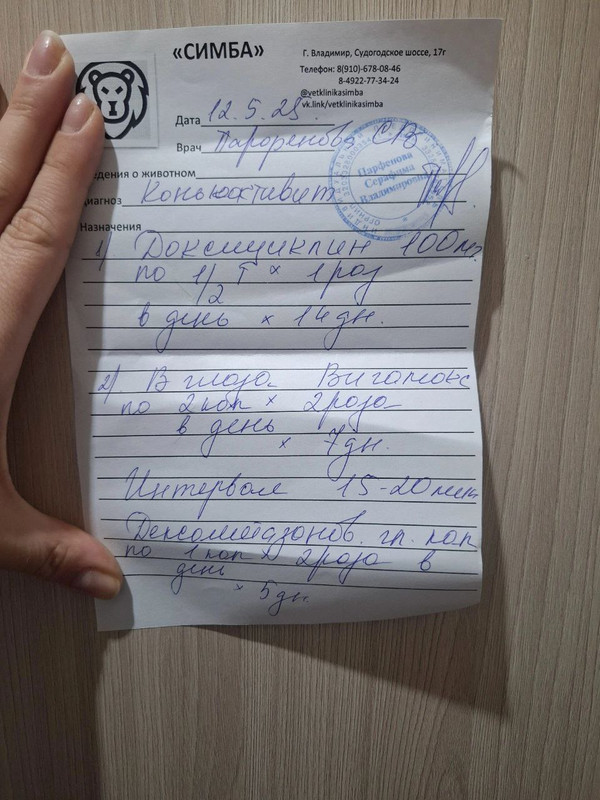 «СИМБА»
Г. Владимир, Судогодское шоссе, 17г
Телефон: 8(910)-678-08-46
8-4922-77-34-24
@vetklinikasimba
vk.link/vetklinikasimba
Дата 12.5.25.
Врач Парфенова СВ
Парфенова
Серафима
Владимировна
едения о животном
диагноз Коньюктивит
Назначения
1) Доксициклин 100мг
по 1/2 т × 1 раз
в день × 14 дн.
2) В глаза Вигамокс
по 2 кап × 2 раза
в день × 7 дн.
Интервал 15-20 мин
Дексаметазонов. гл. кап
по 1 кап × 2 раза в
день × 5 дн.